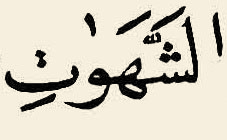 الشَّهَوَٰتِ